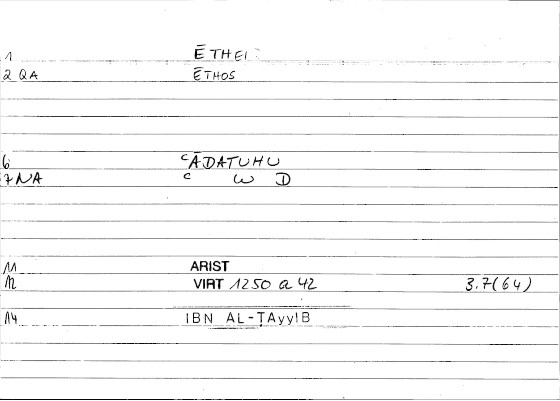 1 ĒTHEI
2 QA ĒTHOS
6 ʿĀDATUHU
7 NA ʿ W D
11 ARIST
12 VIRT 1250 a 42 3.7(64)
14 IBN AL-ṬAyyIB